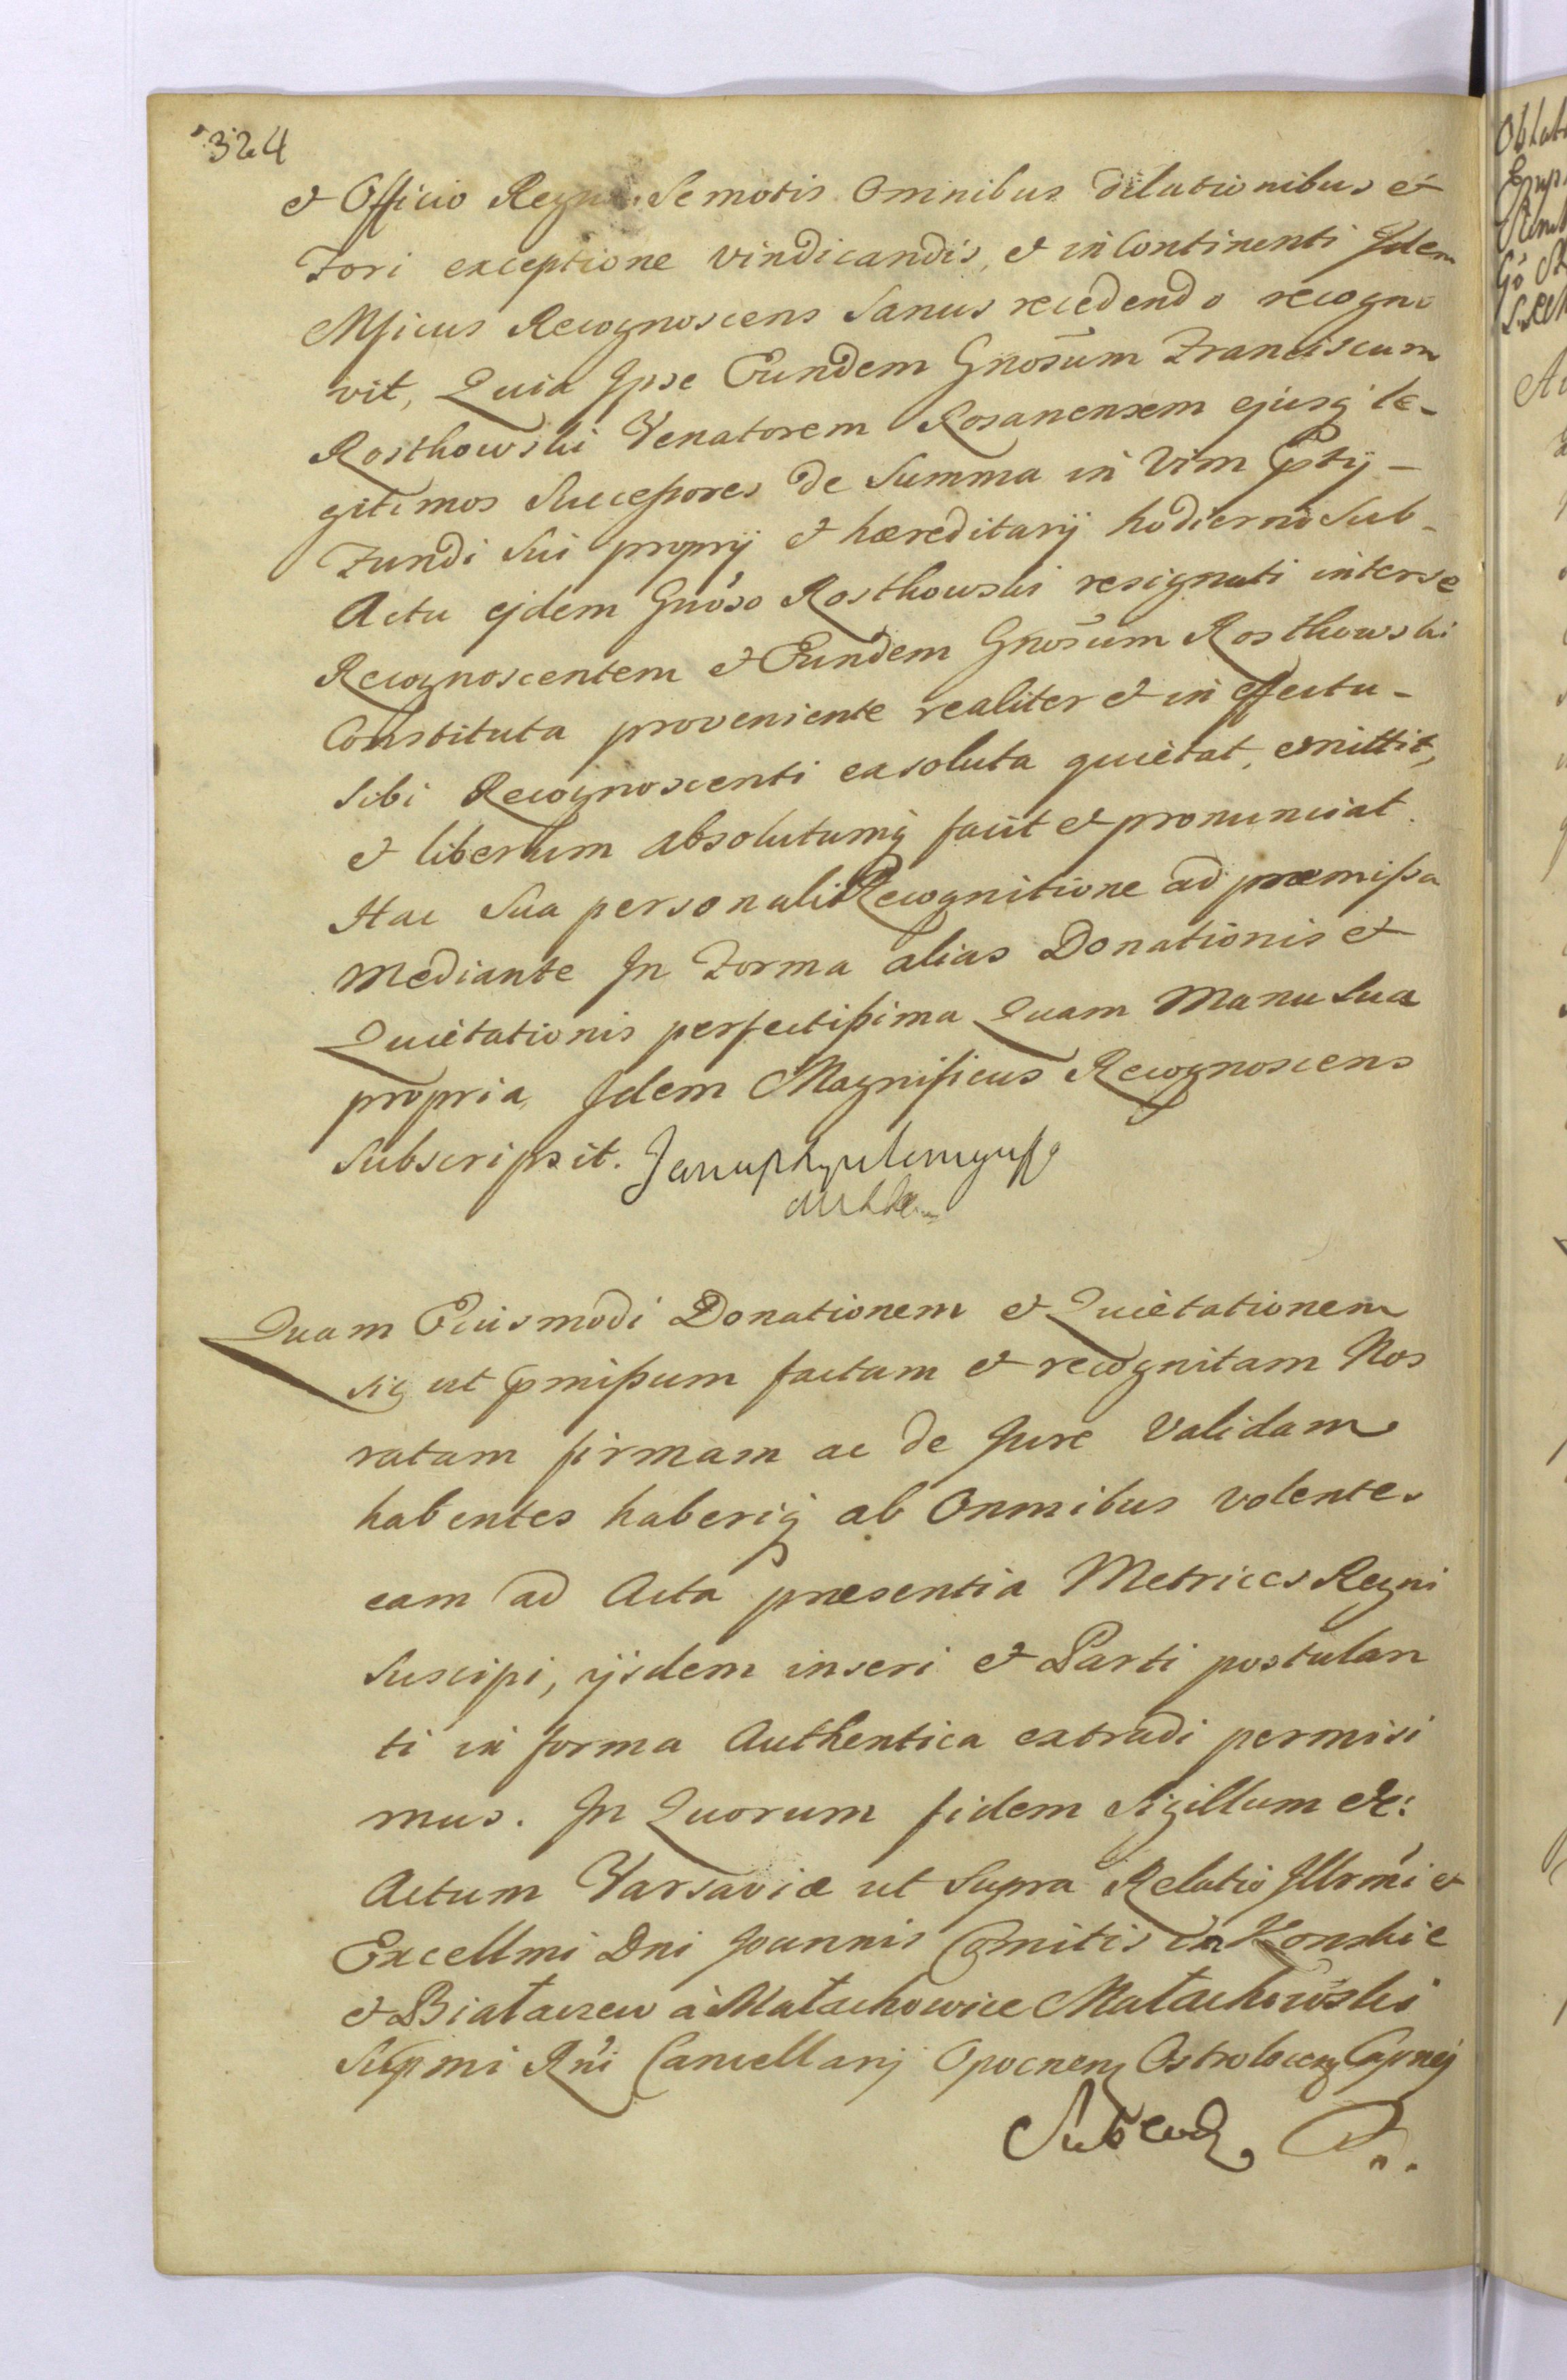 324
et Officio Regni Semotis Omnibus dilationibus et
Fori exceptione vindicandis, et in Continenti Idem
Mficus Recognoscens Sanus recedendo recogno
vit, Quia Ipse Eundem Gnosum Franciscum
Rosthowski Venatorem Rosanensem ejusq le-
gitimos Successores de Summa in Vim Ptij -
Fundi Sui proprij et hæreditarij hodierno Sub-
Actu ejdem Gnoso Rosthowski resignati inter se
Recognoscentem et Eundem Gnosum Rosthowski
Constituta proveniente realiter et in effectu -
Sibi Recognoscenti exsoluta quietat, emittit,
et liberum absolutumq facit et pronunciat.
Hac Sua personali Recognitione ad præmissa
Mediante In Forma alias Donationis et
Quietationis perfectissima Quam Manu Sua
propria Idem Magnificus Recognoscens
Subscripsit.
Quam Eiusmodi Donationem et Quietationem
sic ut pmissum factam et recognitam Nos
ratam firmam ac de Jure Validam
habentes haberiq ab Omnibus volentes
eam ad Acta præsentia Metrices Regni
Suscipi, ijsdem inseri et Parti postulan
ti in forma Authentica extradi permisi
mus. In Quorum fidem Sigillum &c:
Actum Varsaviæ ut Supra Relatio Illrmi et
Excellmi Dni Joannis Comitis in Konskie
et Białaczew à Małachowice Małachowski
Supmi Rni Cancellarij Opocnen Ostrolecen Capnej